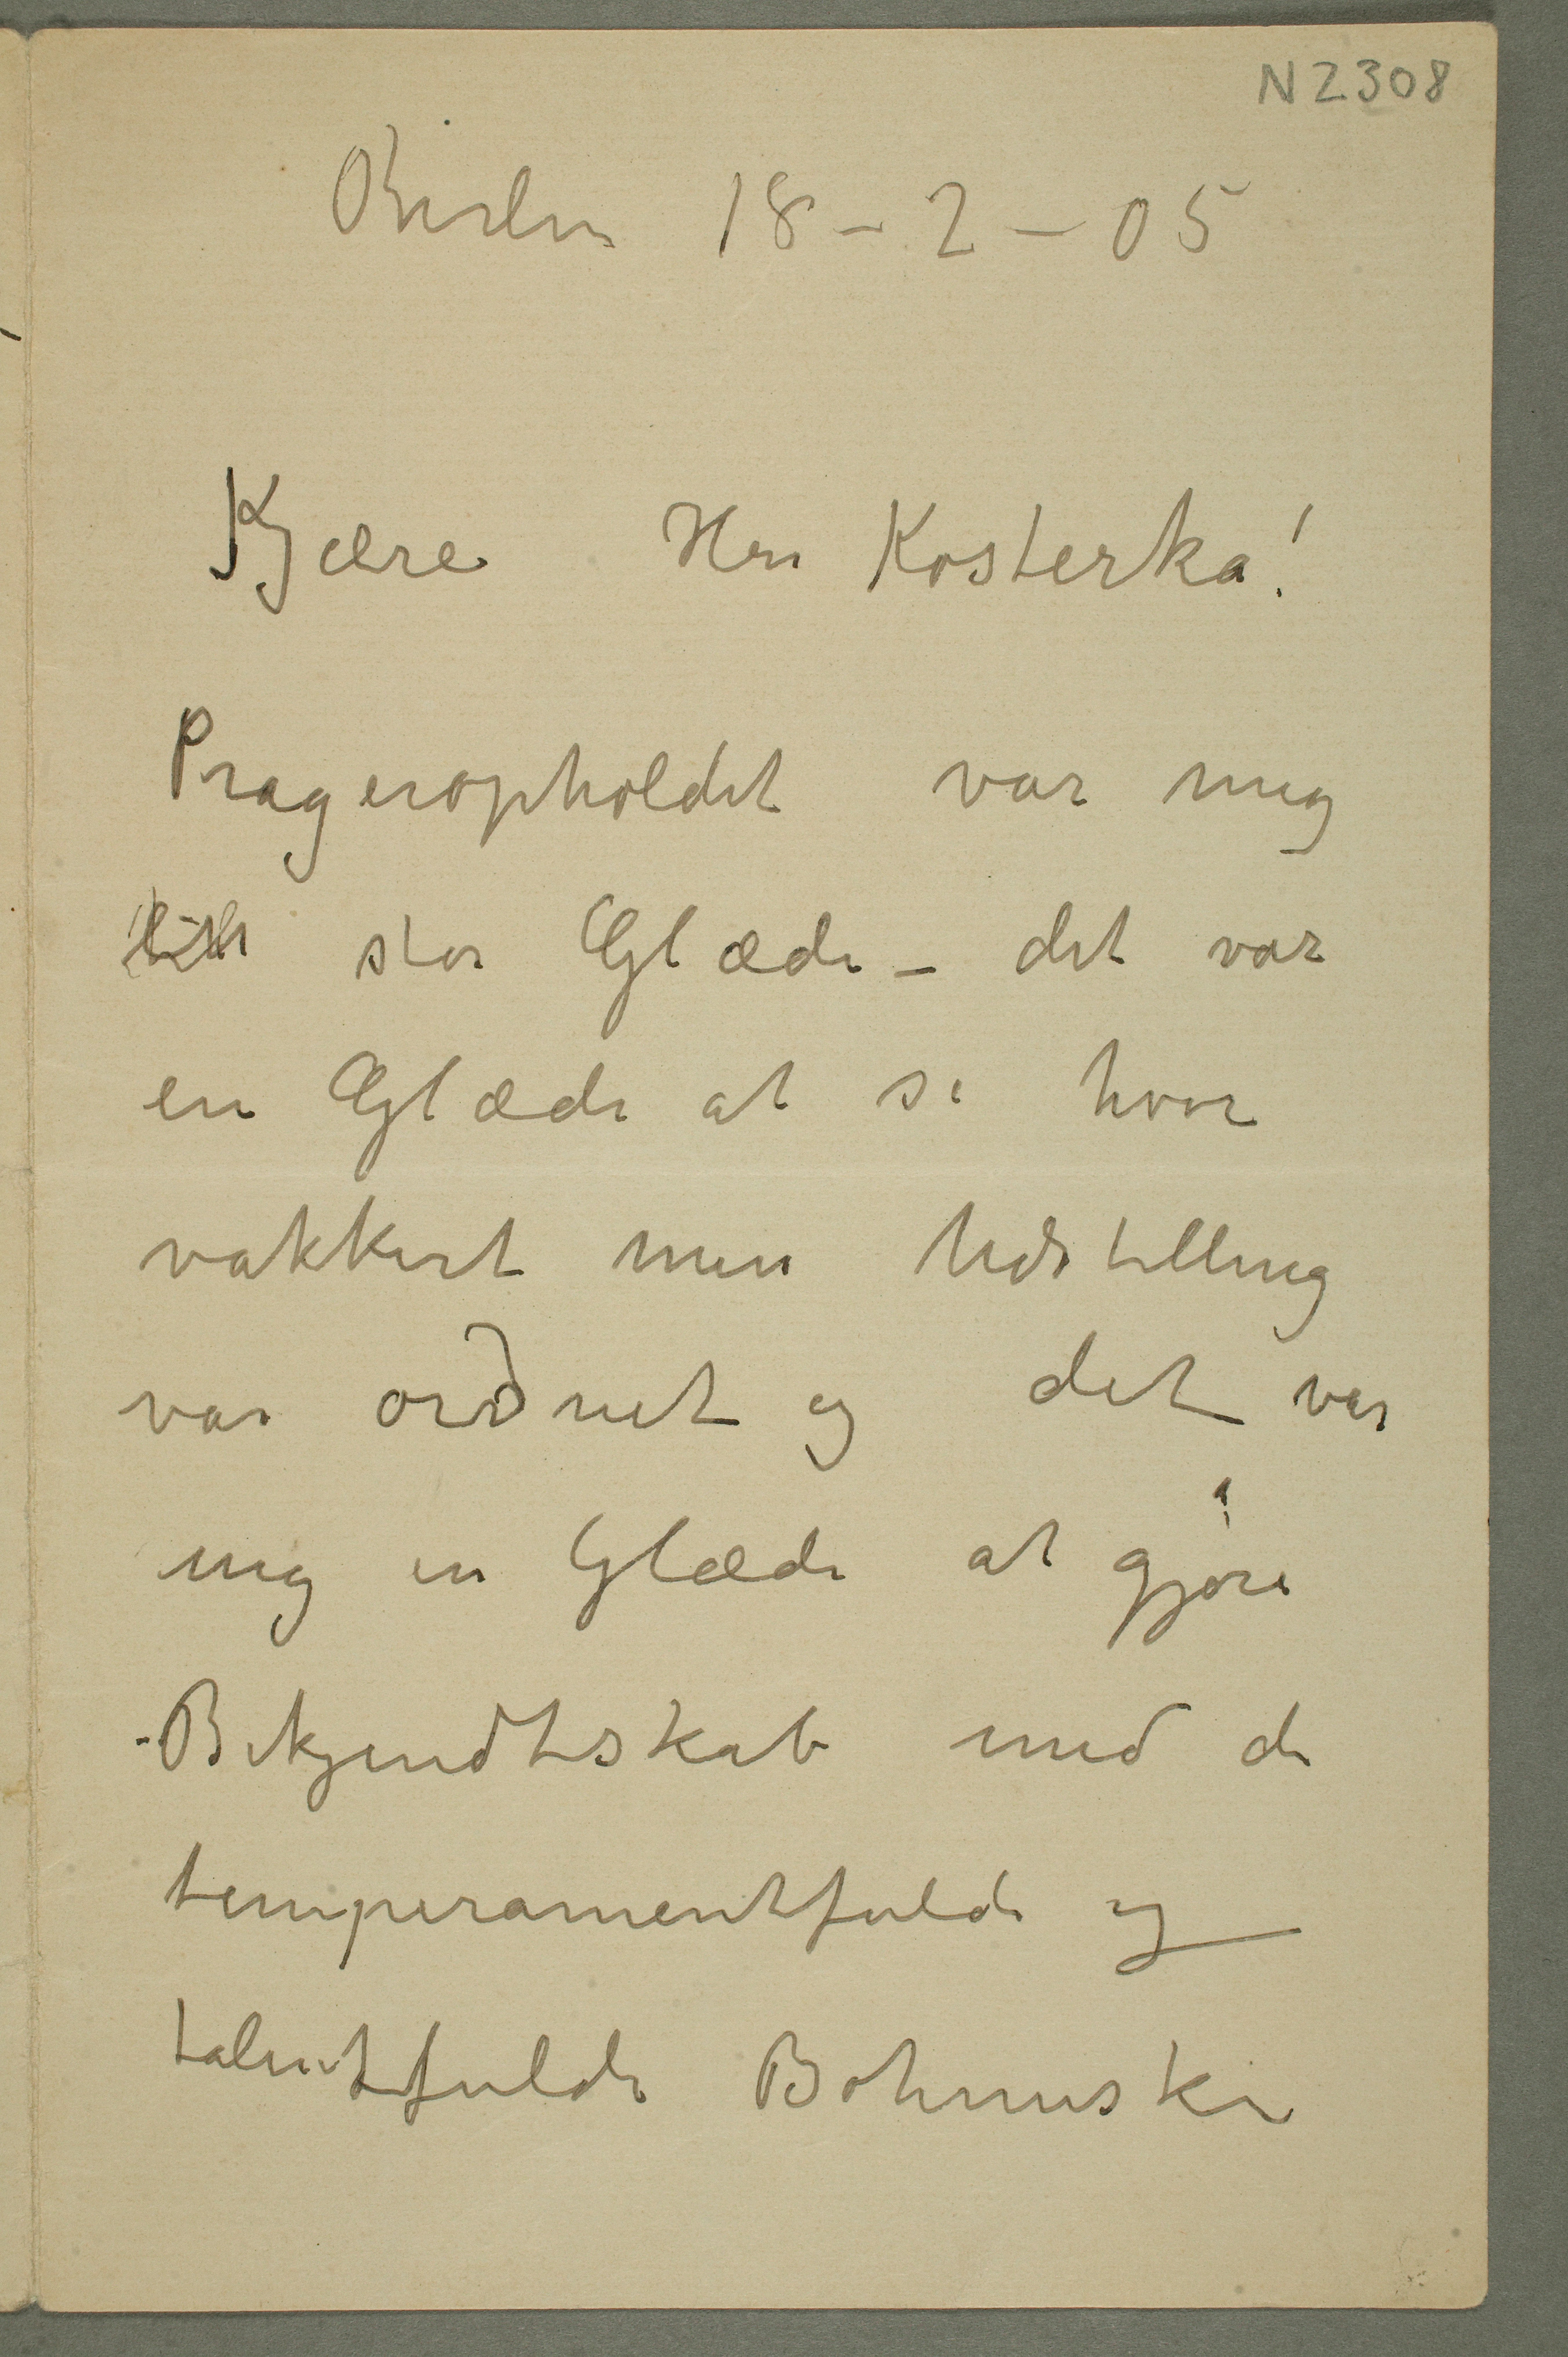 N 2308
Berlin 18-2-05
Kjære Herr Kosterka!
Prageropholdet var mig
stor Glæde – det var
en Glæde at se hvor
vakkert min Udstilling
var ordnet og det var
mig en Glæde at gjøre
Bekjendtskab med de
temperamentfulde og
talentfulde Bohmiske